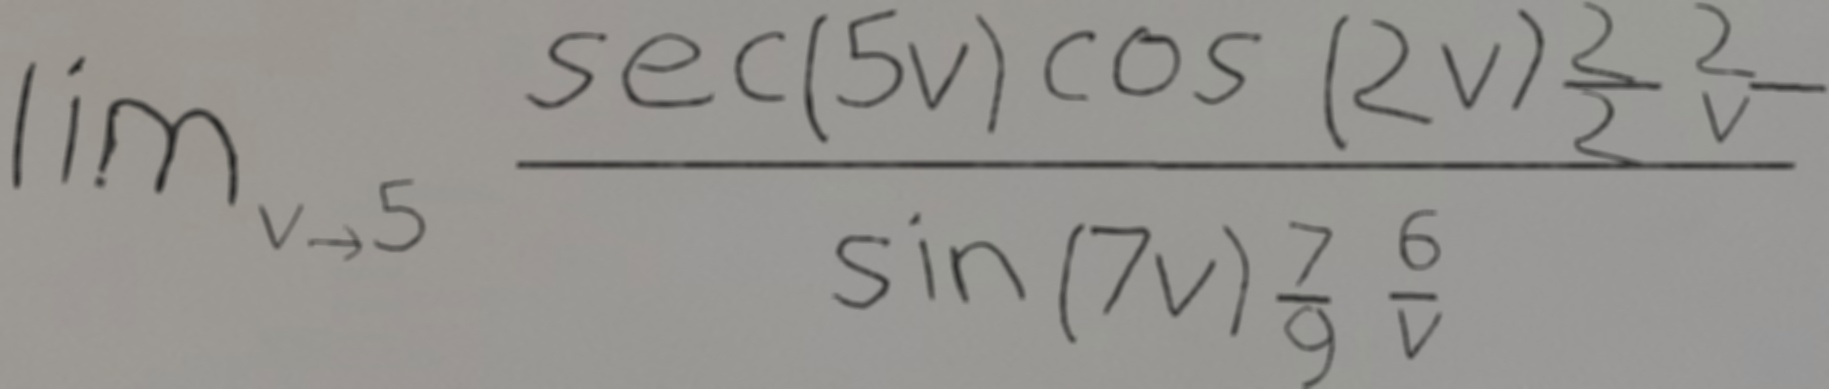 \lim_{v \to 5} \frac{\sec(5v)\cos(2v)\frac{2}{2}\frac{2}{v}}{\sin(7v)\frac{7}{9}\frac{6}{v}}